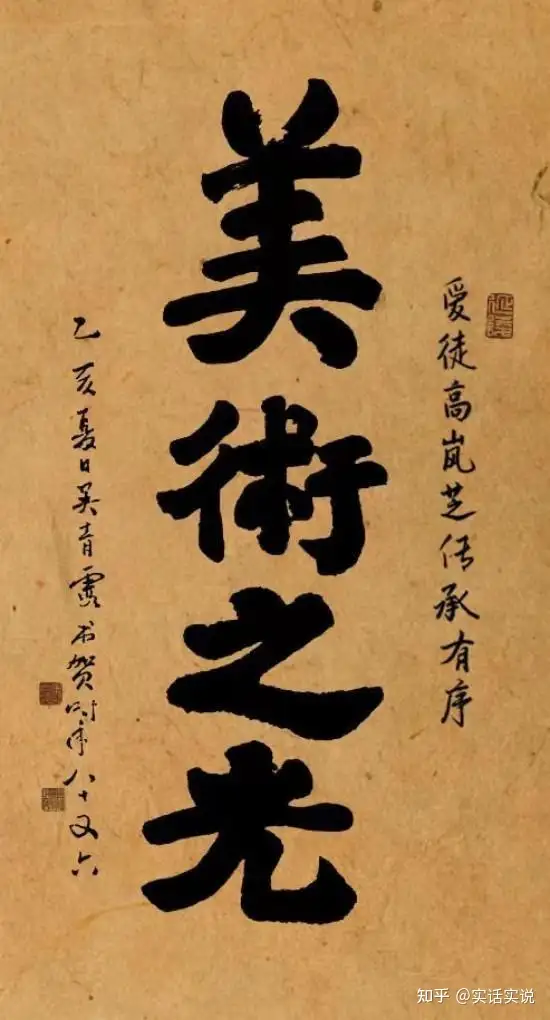 爱徒高岚芝传承有序
美術之光
乙亥夏日吴青霞书贺时年八十又六
知乎 @实话实说